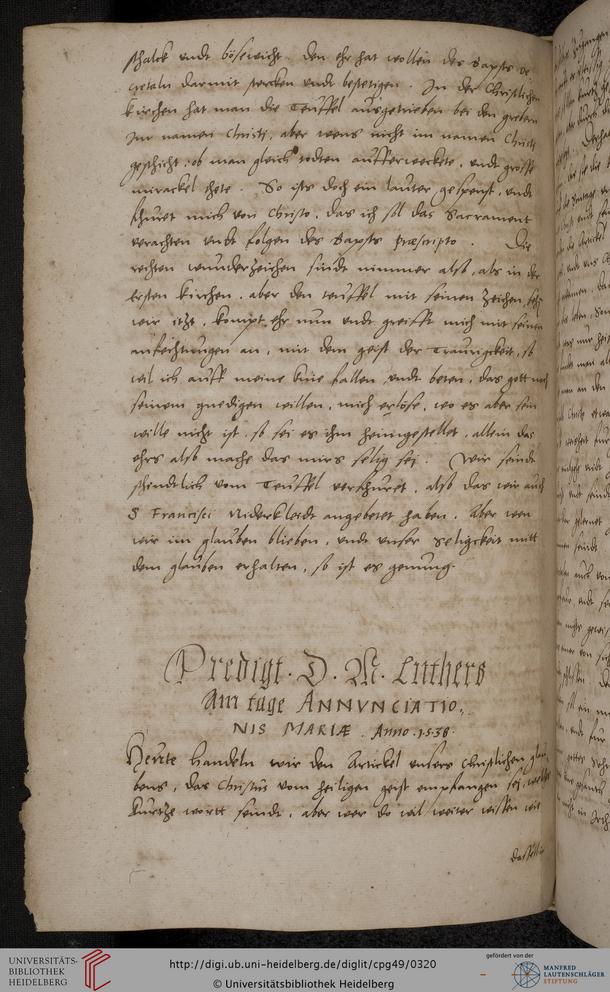 schalck undt bösewicht. den ehr hat wollen des Bapsts de
cretaln darmit stercken undt bestetigen. In der Christlichen
kirchen hat man die Teuffel ausgetrieben bei den grebern
Im namen Christi, aber wens nicht im namen Christi
geschicht: ob man gleich todten aufferweckete, undt grosse
mirackel thete. So ists doch ein lauter gespenst, undt
fhuret mich von Christo, das ich sol das Sacrament
verachten undt folgen des Bapsts praescripto. Die
rechten wunderzeichen sindt nimmer also, als in der
ersten kirchen, aber den teuffel mit seinen zeichen
wir itzt, kompt ehr nun undt greifft mich mit seinen
anfechtungen an, mit dem geist der Traurigkeit, so
wil ich auff meine knie fallen undt beten, das gott nach
seinem gnedigen willen, mich erlöse, wo es aber sein
wille nicht ist, so sei es ihm heimgestellet, allein das
ehrs also mache das mirs selig sei. Wir seindt
schendtlich vom Teuffel verfhuret, also das wir auch
S Francisci Niderkleidt angebetet haben. Aber wen
wir im glauben blieben, undt unser Seligckeit mitt
dem glauben erhalten, so ist es genung.
Predigt. D. M. Luthers
Am tage ANNVNCIATIO,
NIS MARIÆ. Anno. 1538.
Heutte handeln wir den Artickel unsers Christlichen glau-
bens, das Christus vom heiligen geist empfangen sei,
kurtze wortt seindt, aber wer do wil weiter wissen wie
dasselbige
UNIVERSITÄTS-
BIBLIOTHEK
HEIDELBERG
http://digi.ub.uni-heidelberg.de/diglit/cpg49/0320
© Universitätsbibliothek Heidelberg
gefördert von der
MANFRED
LAUTENSCHLÄGER
STIFTUNG